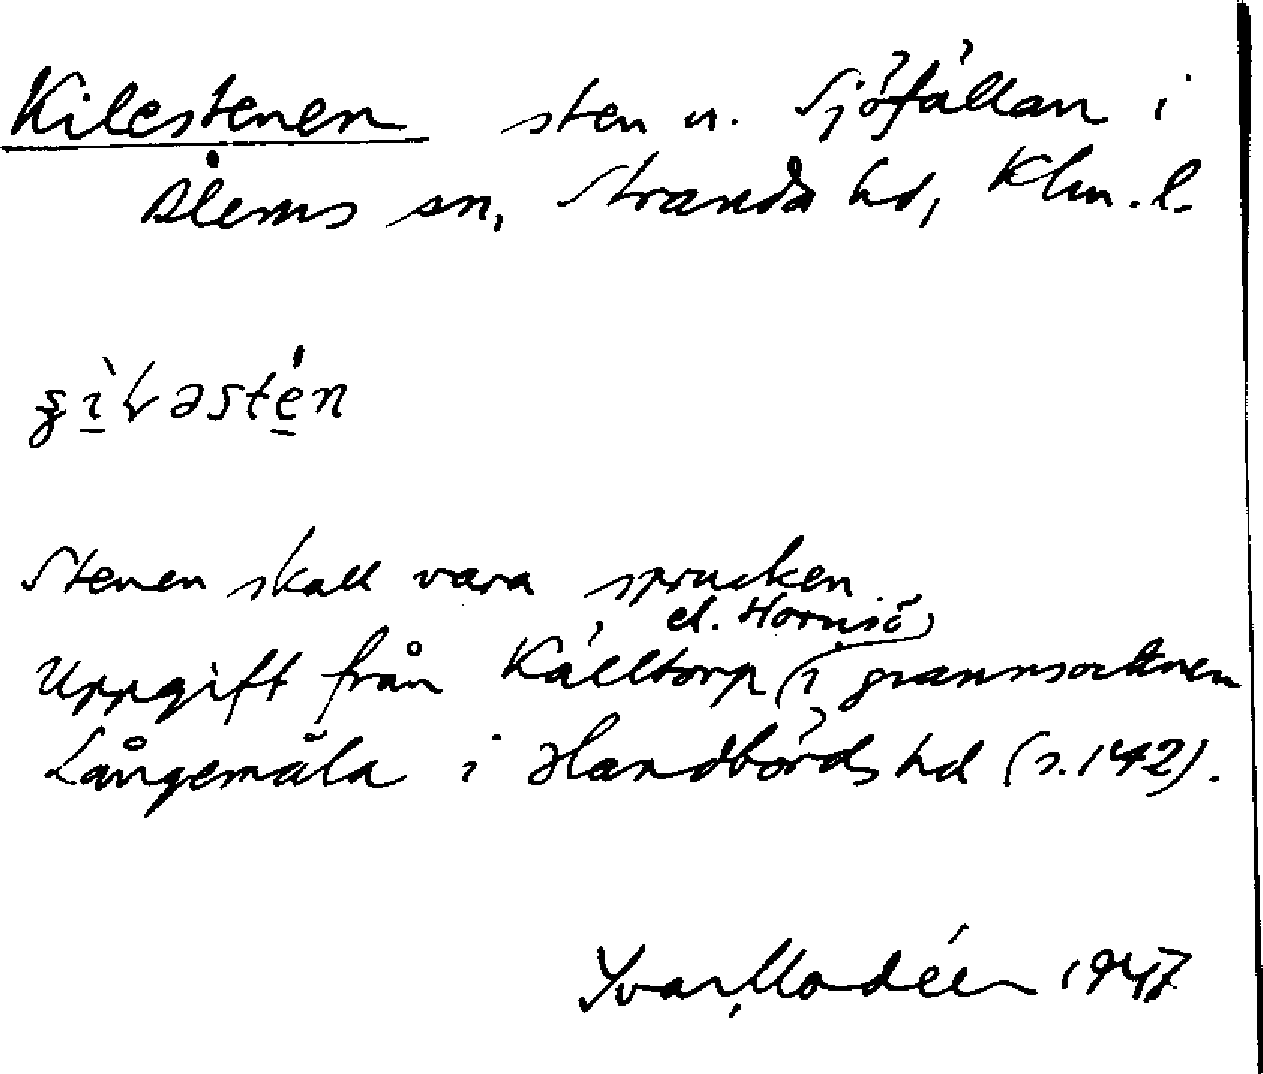 Kilestenen sten n. Sjöfällan i
Ålems sn, Stranda hd, Klm. l.
Stenen skall vara sprucken.
el. Hornsö
Uppgift från Källtorp (i grannsocknen
Långemåla i Handbörds hd (s. 142).
Yvar Modéer 1947